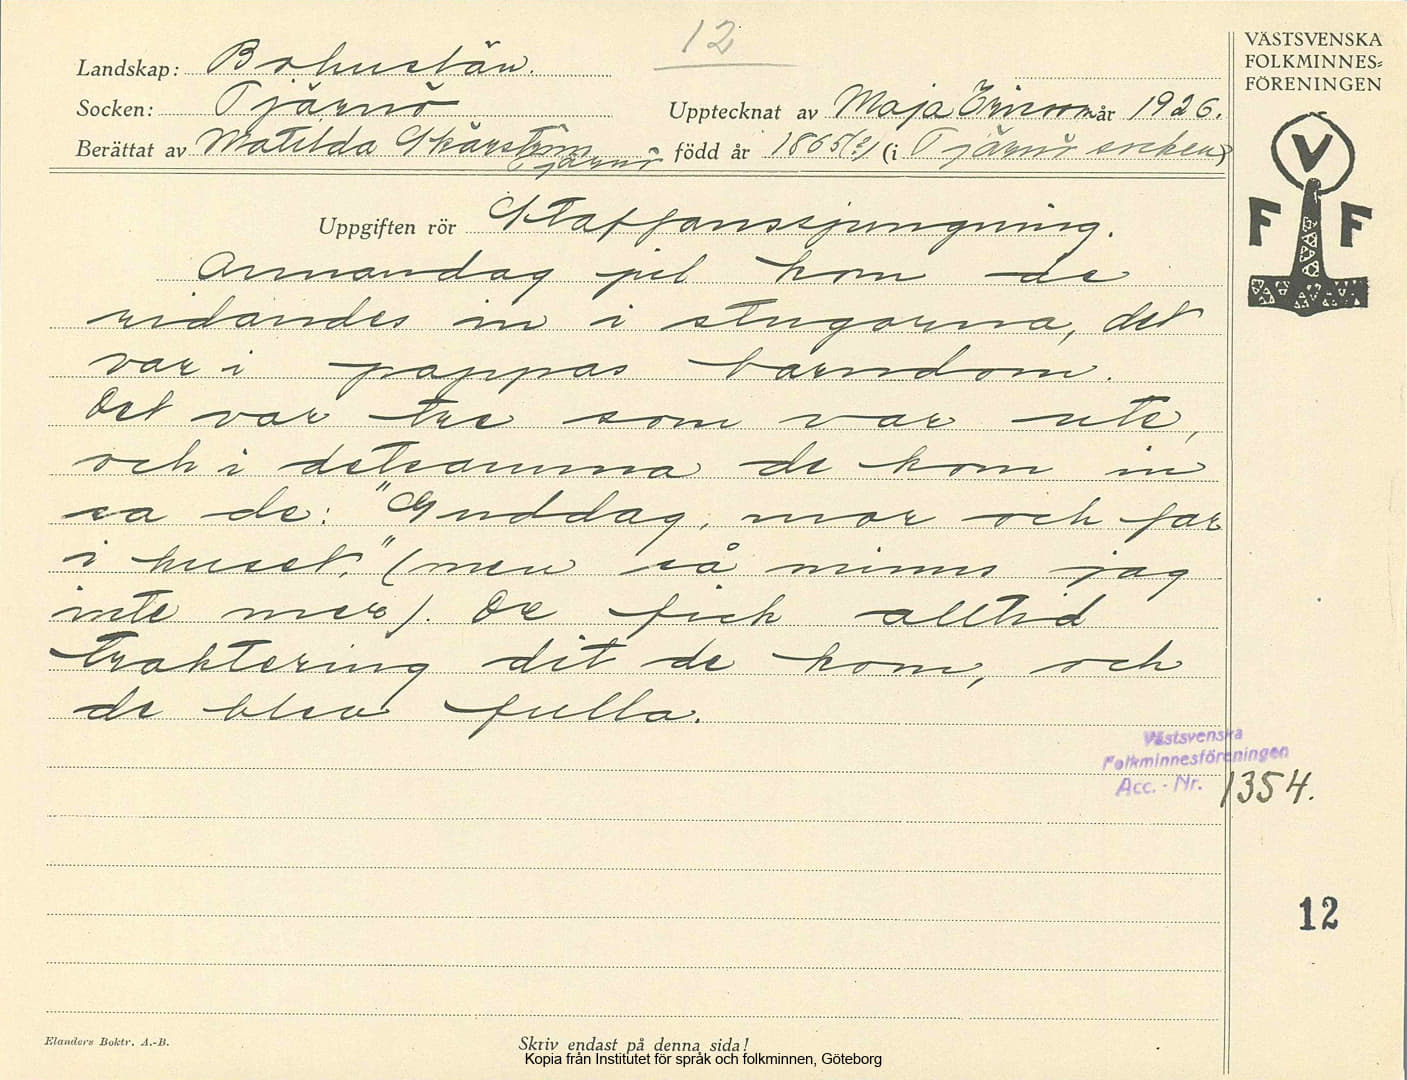 12
VÄSTSVENSKA
FOLKMINNES=
FÖRENINGEN
V
F F
Landskap: Bohuslän.
Socken: Tjärnö
Upptecknat av Maja Ericson år 1926.
Berättat av Matilda Skärström Tjärnö född år 1865(?) (i Tjärnö socken)
Uppgiften rör Staffanssjungning.
Annandag jul kom de
ridandes in i stugorna, det
var i pappas barndom.
Det var tre som var ute,
och i detsamma de kom in
sa de: "Guddag, mor och far
i huset." (men så minns jag
inte mer). De fick alltid
traktering dit de kom, och
de blev fulla.
Västsvenska
Folkminnesföreningen
Acc. - Nr. 1354.
12
Elanders Boktr. A.-B.
Skriv endast på denna sida!
Kopia från Institutet för språk och folkminnen, Göteborg